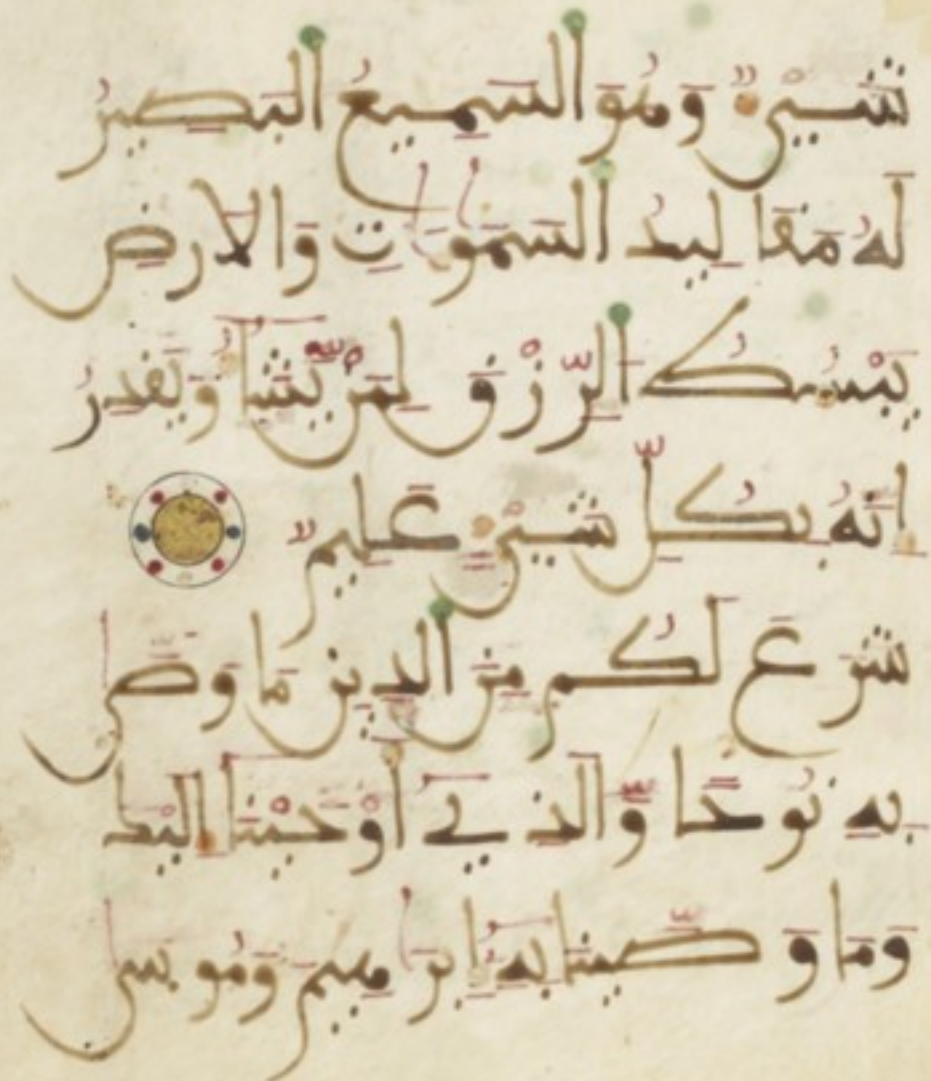 شَيْءٌ وَهُوَ السَّمِيعُ الْبَصِيرُ
لَهُ مَقَالِيدُ السَّمَٰوَٰتِ وَالَارْضِ
يَبْسُطُ الرِّزْقَ لِمَنْ يَّشَاءُ وَيَقْدِرُ
إِنَّهُ بِكُلِّ شَيْءٍ عَلِيمٌ
شَرَعَ لَكُم مِّنَ الدِّينِ مَا وَصَّىٰ
بِهِ نُوحًا وَّالَّذِي أَوْحَيْنَا إِلَيْكَ
وَمَا وَصَّيْنَا بِهِ إِبْرَاهِيمَ وَمُوسَىٰ